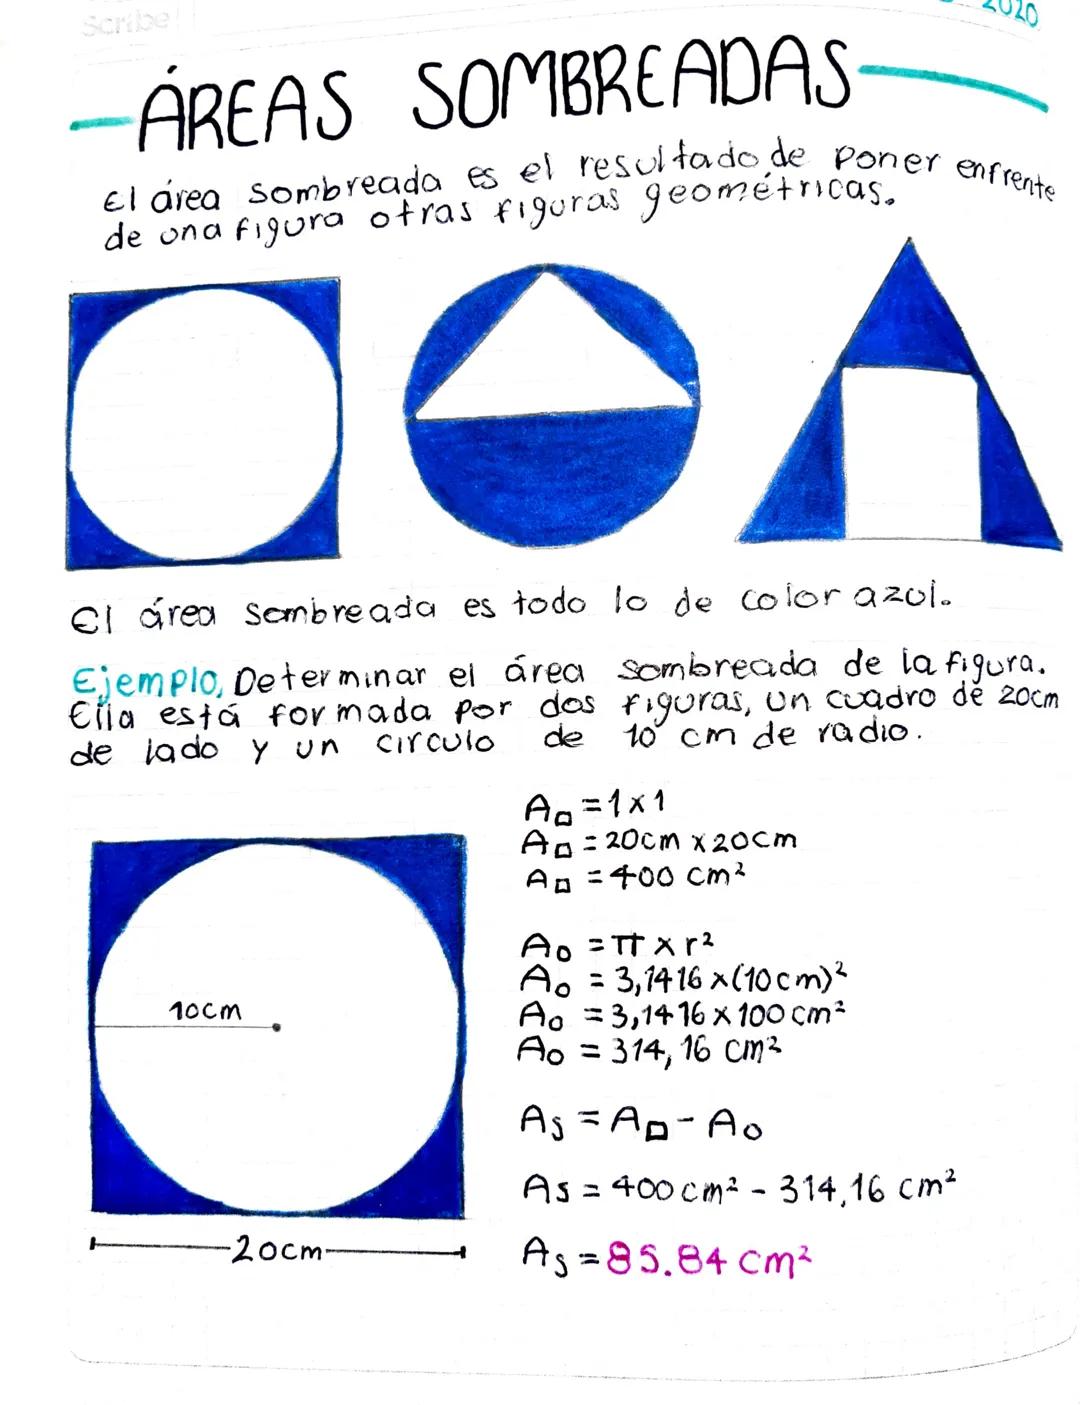 Scribe
2020
ÁREAS SOMBREADAS
El área sombreada es el resultado de poner enfrente
de una figura otras figuras geométricas.
El área sombreada es todo lo de color azul.
Ejemplo, Determinar el área sombreada de la figura.
Ella está formada por dos figuras, un cuadro de 20cm
de lado y un circulo de 10 cm de radio.
A□ = 1 x 1
A□ = 20cm x 20cm
A□ = 400 cm²
A○ = π x r²
A○ = 3,1416 x (10cm)²
A○ = 3,1416 x 100 cm²
A○ = 314,16 cm²
10cm
As = A□ - A○
As = 400 cm² - 314,16 cm²
As = 85.84 cm²
20cm